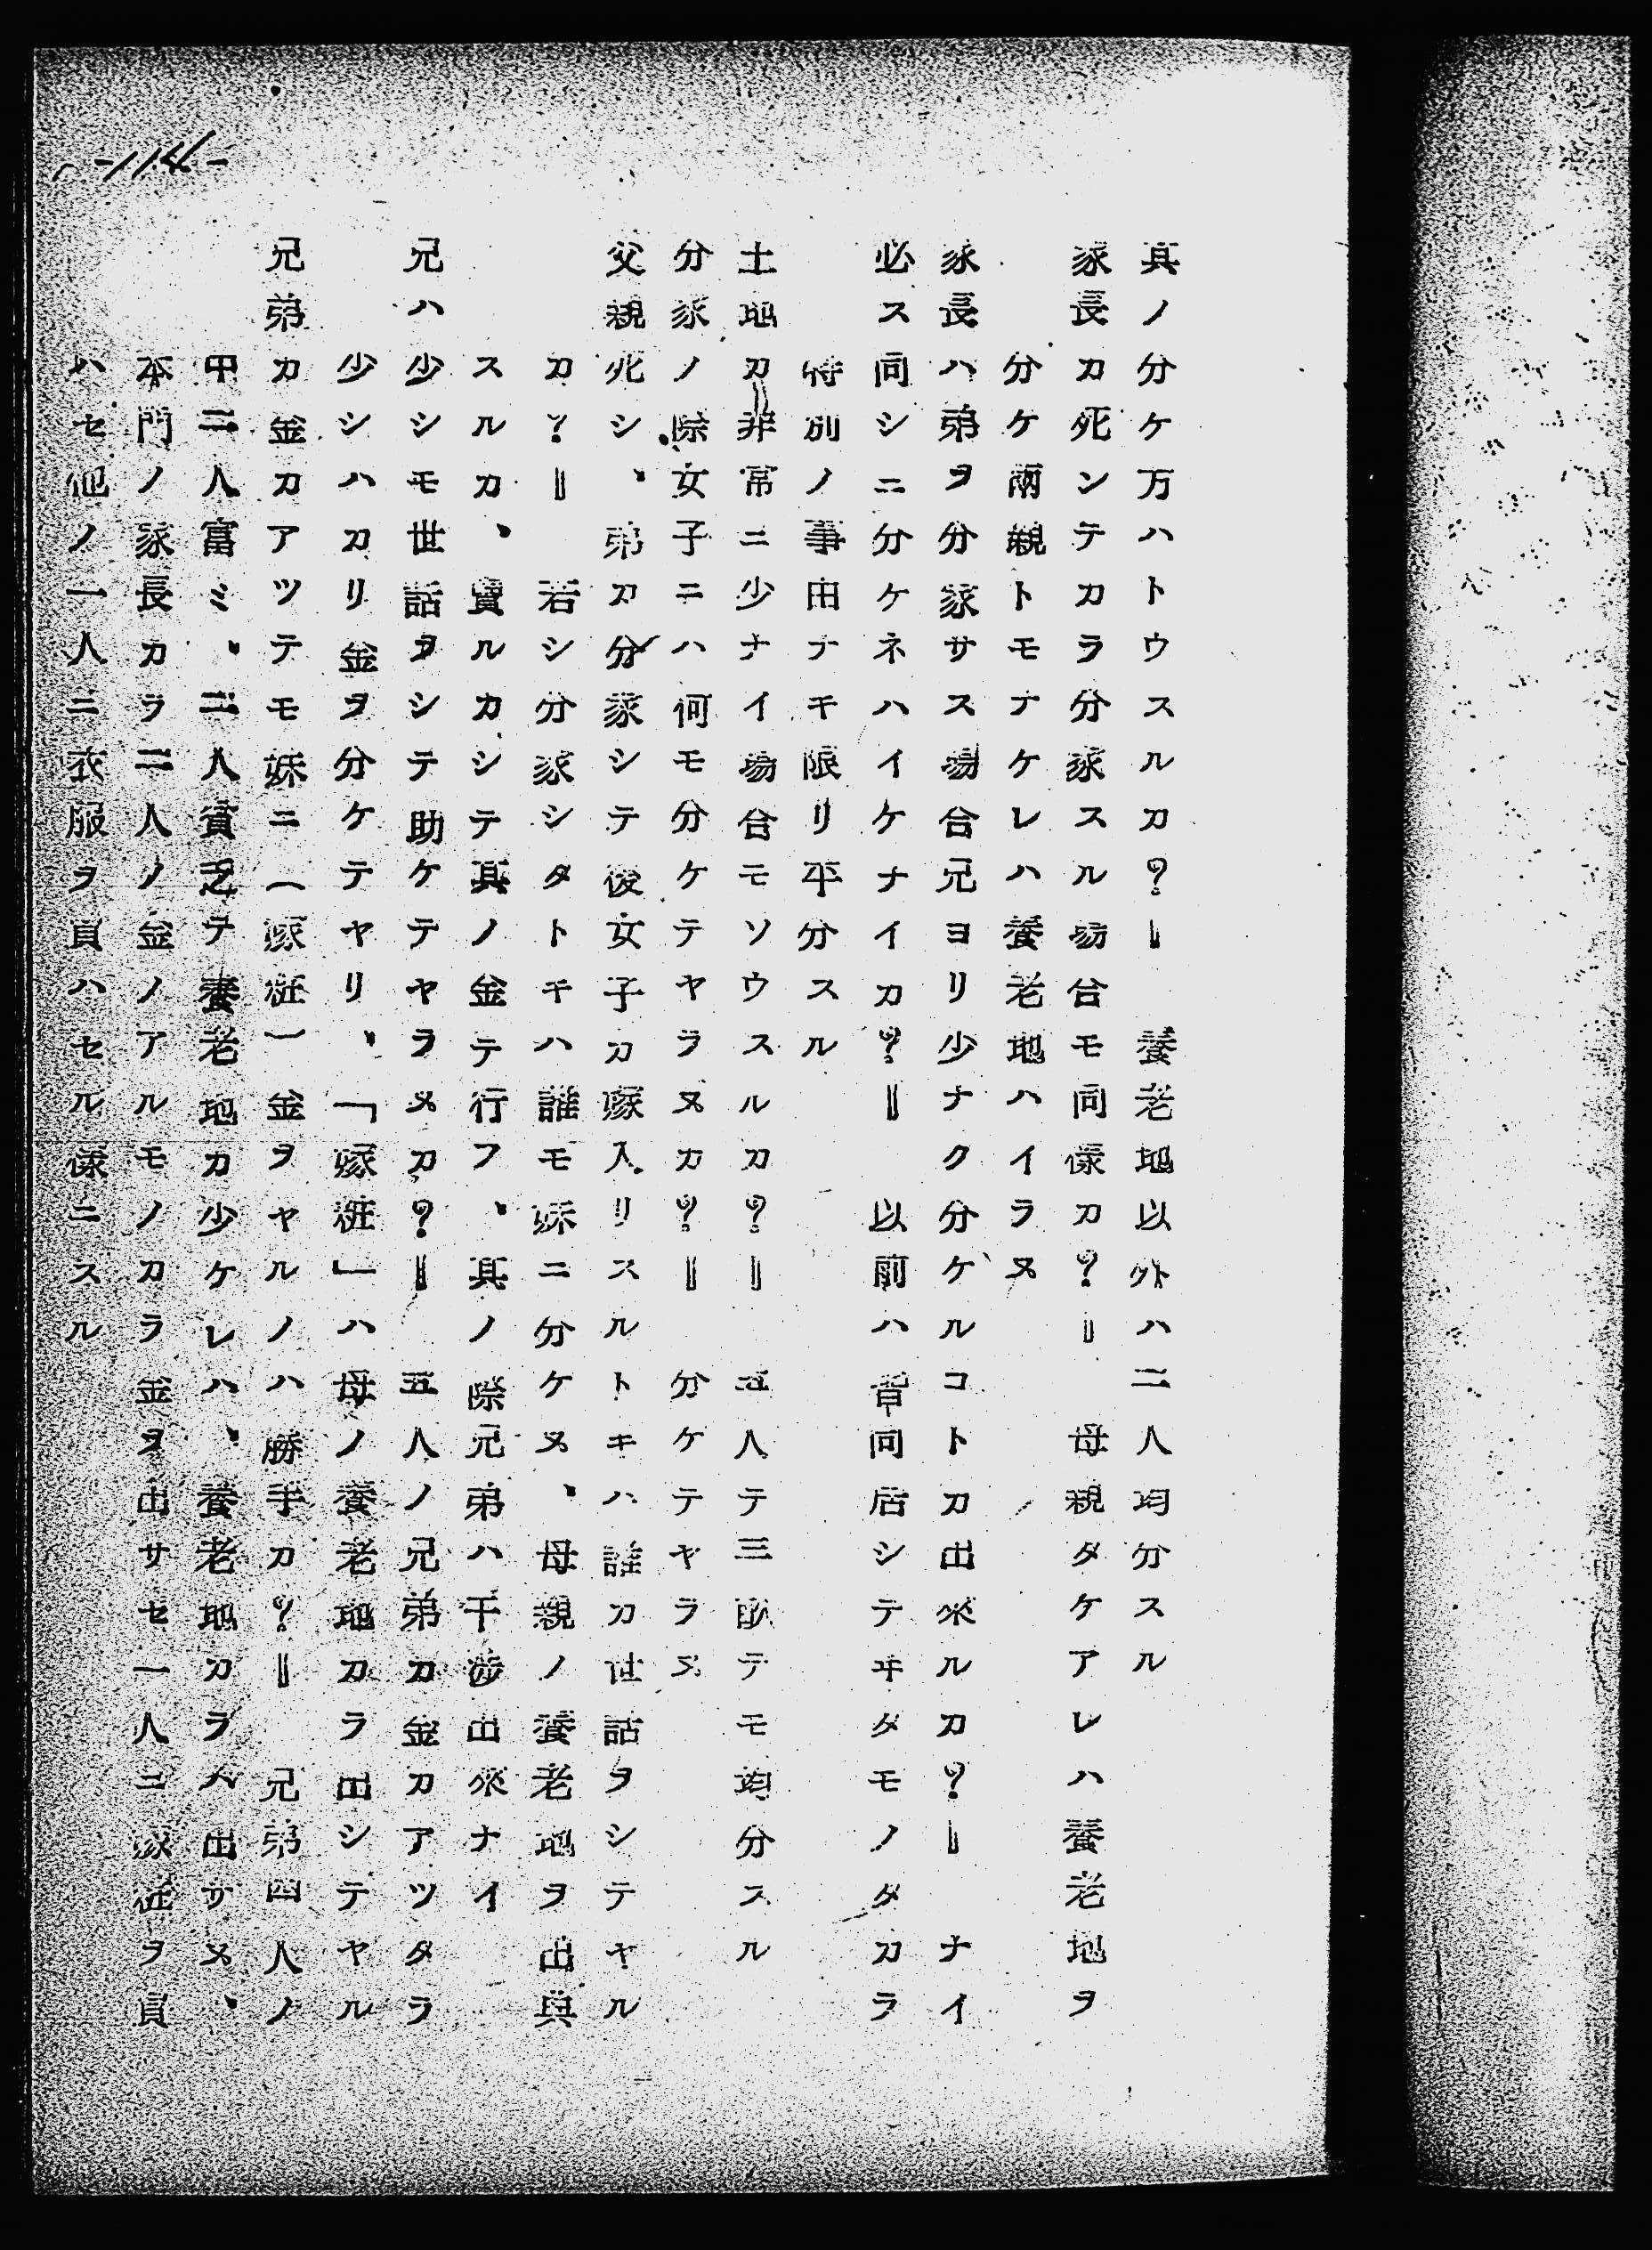 -114-
其ノ分ケ方ハトウスルカ?‖ 養老地以外ハ二人均分スル
家長カ死ンテカラ分家スル場合モ同様カ?‖ 母親タケアレハ養老地ヲ
分ケ兩親トモナケレハ養老地ハイラヌ
家長ハ弟ヲ分家サス場合兄ヨリ少ナク分ケルコトカ出來ルカ?‖ ナイ
必ス同シニ分ケネハイケナイカ?‖ 以前ハ皆同居シテヰタモノタカラ
特別ノ事由ナキ限リ平分スル
土地カ非常ニ少ナイ場合モソウスルカ?‖ 五人テ三畝テモ均分スル
分家ノ際女子ニハ何モ分ケテヤラヌカ?‖ 分ケテヤラヌ
父親死シ、弟カ分家シテ後女子カ嫁入リスルトキハ誰カ世話ヲシテヤル
カ?‖ 若シ分家シタトキハ誰モ妹ニ分ケヌ、母親ノ養老地ヲ出典
スルカ、賣ルカシテ其ノ金テ行フ、其ノ際兄弟ハ干渉出來ナイ
兄ハ少シモ世話ヲシテ助ケテヤラヌカ?‖ 五人ノ兄弟カ金カアツタラ
少シハカリ金ヲ分ケテヤリ、「嫁粧」ハ母ノ養老地カラ出シテヤル
兄弟カ金カアツテモ妹ニ(嫁粧)金ヲヤルノハ勝手カ?‖ 兄弟四人ノ
中二人富ミ、二人貧乏テ養老地カ少ケレハ、養老地カラハ出サヌ、
本門ノ家長カラ二人ノ金ノアルモノカラ金ヲ出サセ一人ニ嫁粧ヲ買
ハセ他ノ一人ニ衣服ヲ買ハセル様ニスル